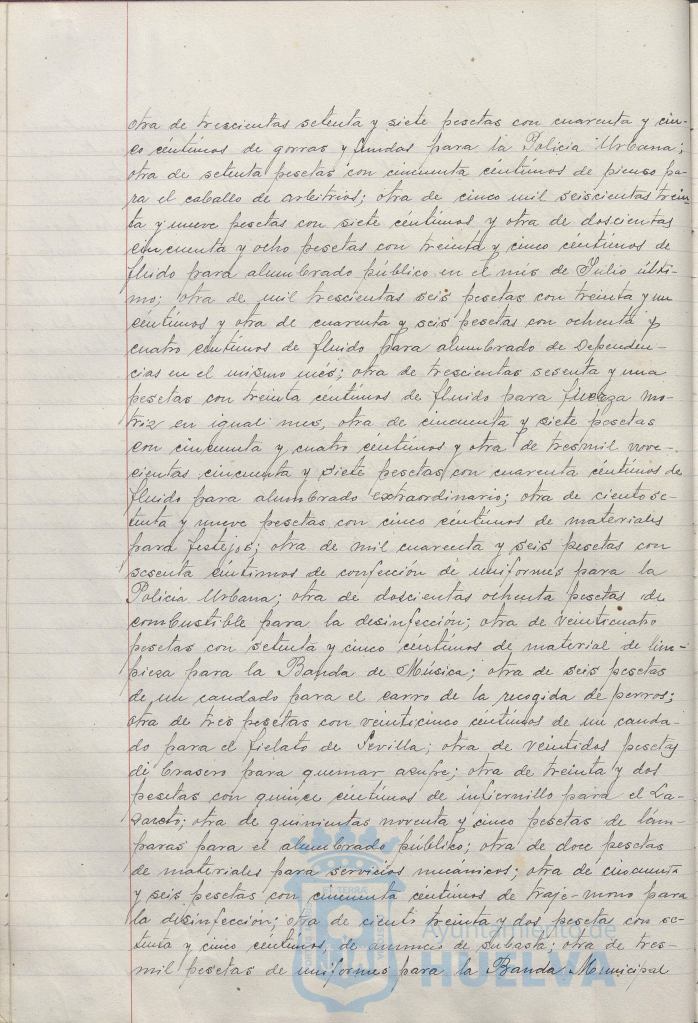 otra de trescientas setenta y siete pesetas con cuarenta y cin-
co céntimos de gorras y fundas para la Policia Urbana;
otra de setenta pesetas con cincuenta céntimos de pienso pa-
ra el caballo de arbitrios; otra de cinco mil seiscientas trein
ta y nueve pesetas con siete céntimos y otra de doscientas
cincuenta y ocho pesetas con treinta y cinco céntimos de
fluido para alumbrado público en el mes de Julio últi-
mo; otra de mil trescientas seis pesetas con treinta y un
céntimos y otra de cuarenta y seis pesetas con ochenta y
cuatro céntimos de fluido para alumbrado de Dependen-
cias en el mismo mes; otra de trescientas sesenta y una
pesetas con treinta céntimos de fluido para fuerza mo-
triz en igual mes, otra de cincuenta y siete pesetas
con cincuenta y cuatro céntimos y otra de tres mil nove-
cientas cincuenta y siete pesetas con cuarenta céntimos de
fluido para alumbrado extraordinario; otra de ciento se-
tenta y nueve pesetas con cinco céntimos de materiales
para festejos; otra de mil cuarenta y seis pesetas con
sesenta céntimos de confección de uniformes para la
Policia Urbana; otra de doscientas ochenta pesetas de
combustible para la desinfección; otra de veinticuatro
pesetas con setenta y cinco céntimos de material de lim-
pieza para la Banda de Música; otra de seis pesetas
de un candado para el carro de la recogida de perros;
otra de tres pesetas con veinticinco céntimos de un canda-
do para el fielato de Sevilla; otra de veintidos pesetas
de brasero para quemar azufre; otra de treinta y dos
pesetas con quince céntimos de infiernillo para el La-
zareto; otra de quinientas noventa y cinco pesetas de lám-
paras para el alumbrado público; otra de doce pesetas
de materiales para servicios mecánicos; otra de cincuenta
y seis pesetas con cincuenta céntimos de traje-mono para
la desinfección; otra de ciento treinta y dos peseta con se-
tenta y cinco céntimos, de anuncio de subasta; otra de tres
mil pesetas de uniformes para la Banda Municipal
Ayuntamiento de
HUELVA